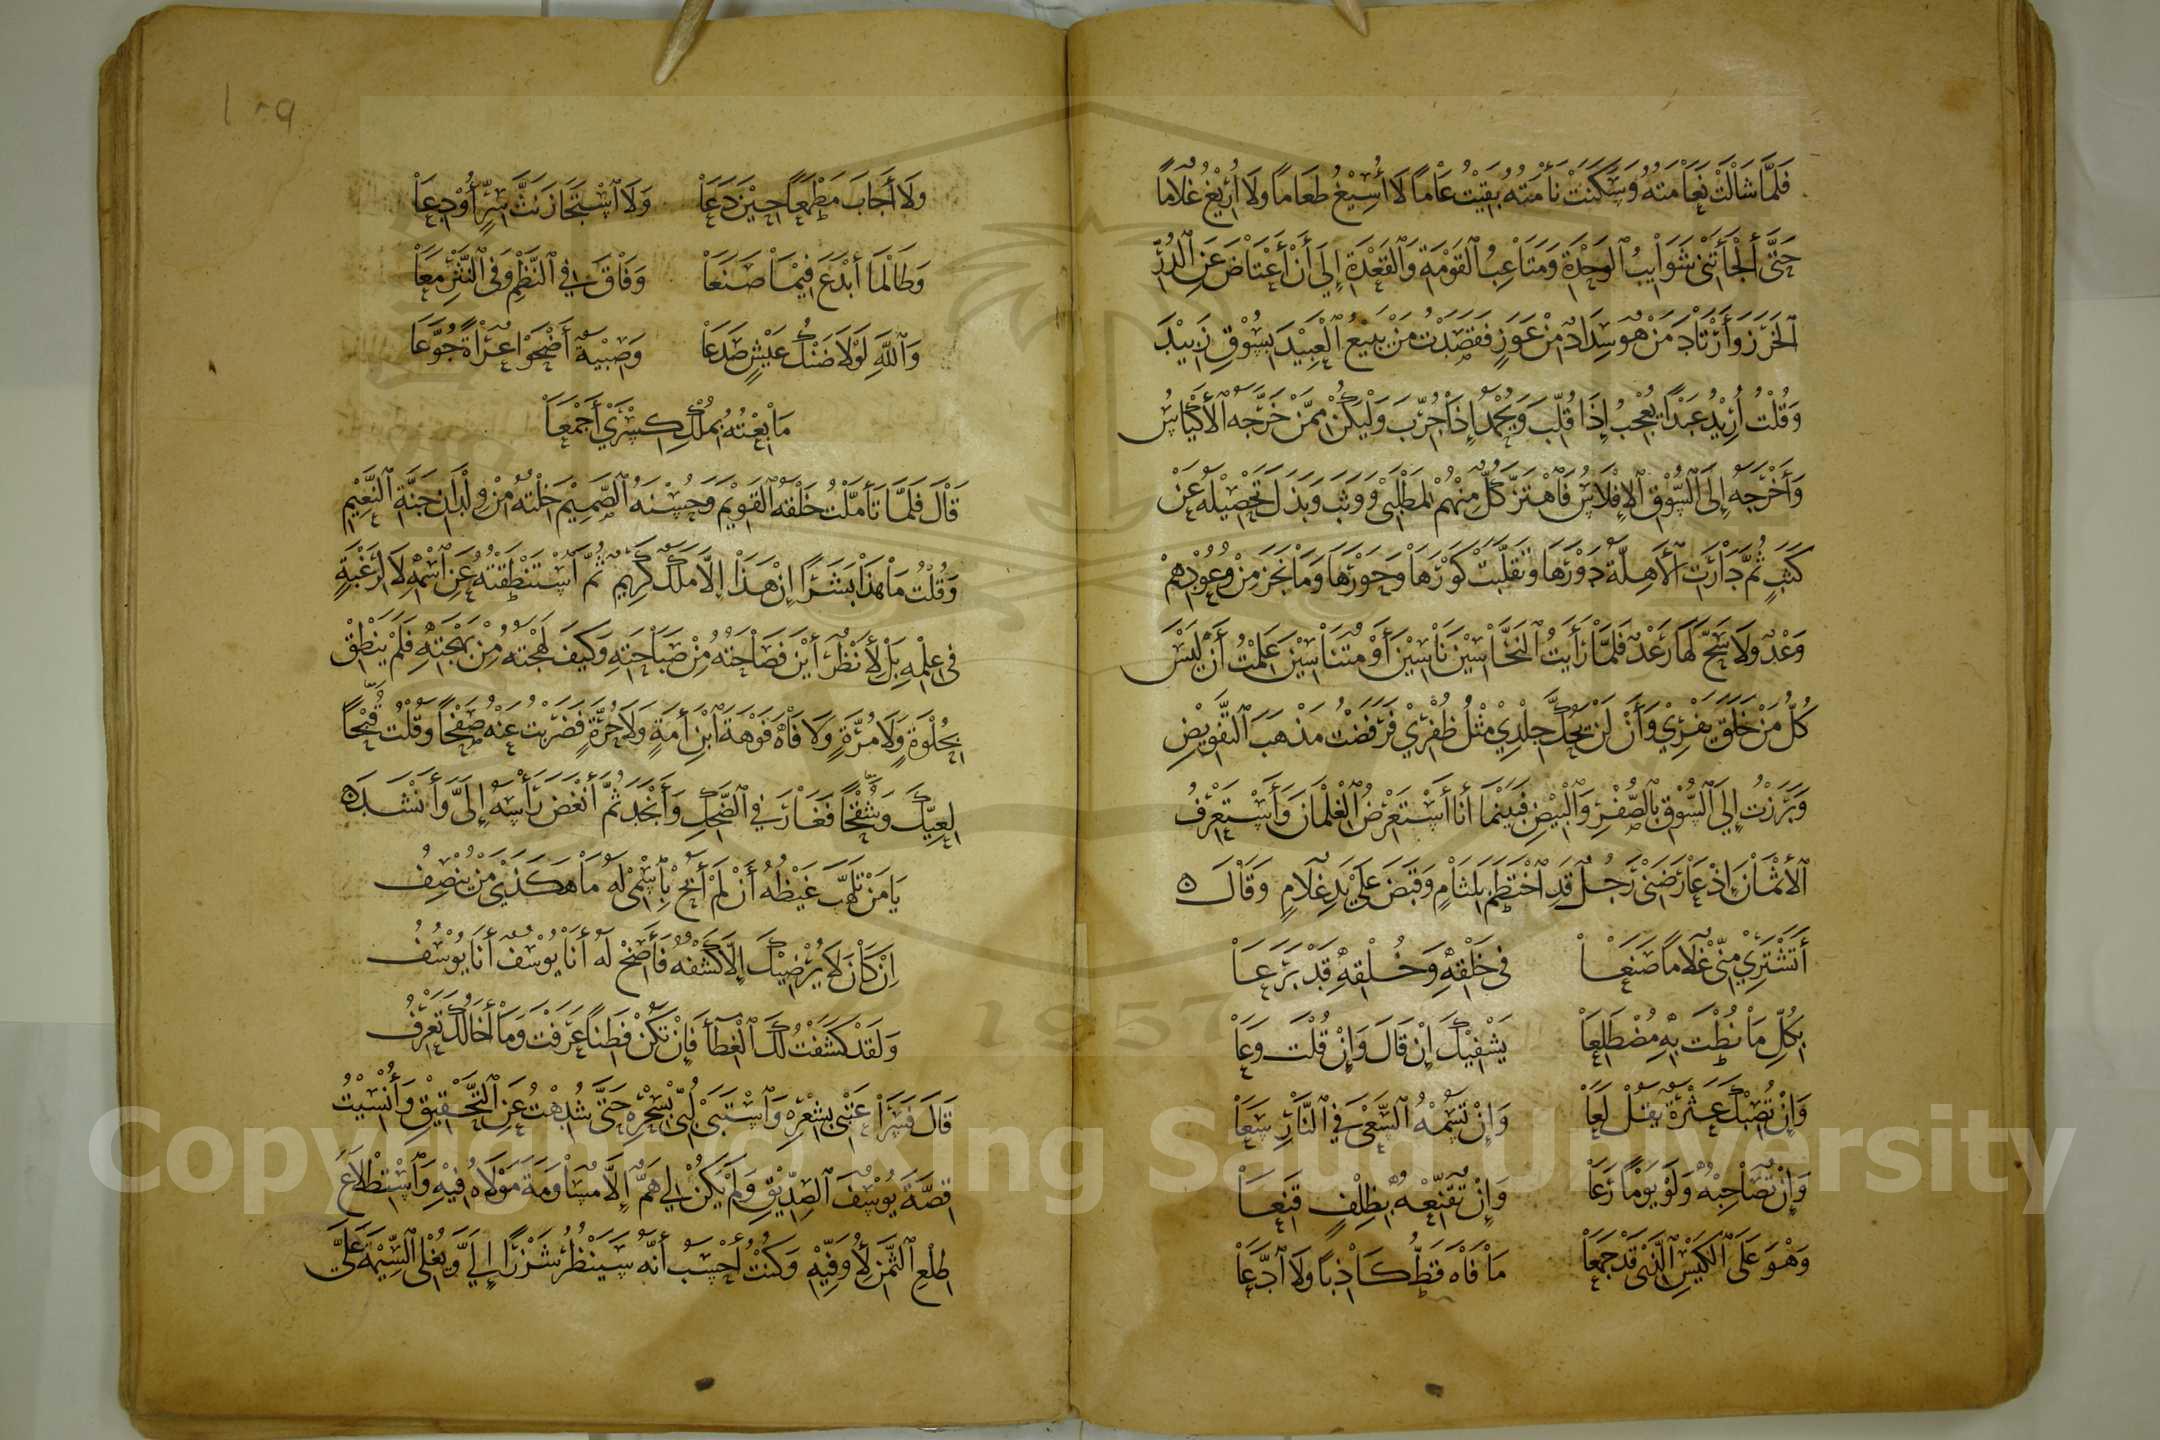 فَلَمَّا شَالَتْ نَعَامَتُهُ وَسَكَنَتْ نَأْمَتُهُ بَقِيْتُ عَامًا لَا أُسِيْغُ طَعَامًا وَلَا أُرِيْغُ غُلَامًا
حَتَّى أَلْجَأَتْنِيْ شَوَايِبُ الْوَحْدَةِ وَمَتَاعِبُ الْقَوْمَةِ وَالْقَعْدَةِ إِلَى أَنْ أَعْتَاضَ عَنِ الدُّرِّ
الْخَرَزَ وَأَرْتَادَ مَنْ هُوَ سِدَادٌ مِنْ عَوَزٍ فَقَصَدْتُ مَنْ يَبِيْعُ الْعَبِيْدَ بِسُوْقِ زَبِيْدَ
وَقُلْتُ أُرِيْدُ عَبْدًا يُعْجِبُ إِذَا قُلِّبَ وَيُحْمَدُ إِذَا جُرِّبَ وَلْيَكُنْ مِمَّنْ خَرَّجَهُ الْأَكْيَاسُ
وَأَخْرَجَهُ إِلَى السُّوْقِ الْإِفْلَاسُ فَاهْتَزَّ كُلٌّ مِنْهُمْ لِمَطْلَبِيْ وَوَثَبَ وَبَذَلَ تَحْصِيْلَهُ عَنْ
كَثَبٍ ثُمَّ دَارَتِ الْأَهِلَّةُ دَوْرَهَا وَتَقَلَّبَتْ كَوْرَهَا وَحَوْرَهَا وَمَا نَجَزَ مِنْ وُعُوْدِهِمْ
وَعْدٌ وَلَا سَحَّ لَهَا رَعْدٌ فَلَمَّا رَأَيْتُ النَّخَّاسِيْنَ نَاسِيْنَ أَوْ مُتَنَاسِيْنَ عَلِمْتُ أَنْ لَيْسَ
كُلُّ مَنْ خَلَقَ يَفْرِيْ وَأَنْ لَنْ يَحُكَّ جِلْدِيْ مِثْلُ ظُفْرِيْ فَرَفَضْتُ مَذْهَبَ التَّفْوِيْضِ
وَبَرَزْتُ إِلَى السُّوْقِ بِالصُّفْرِ وَالْبِيْضِ فَبَيْنَمَا أَنَا أَسْتَعْرِضُ الْغِلْمَانَ وَأَسْتَعْرِفُ
الْأَثْمَانَ إِذْ عَارَضَنِيْ رَجُلٌ قَدِ اخْتَطَمَ بِلِثَامٍ وَقَبَضَ عَلَى يَدِ غُلَامٍ وَقَالَ
أَتَشْتَرِيْ مِنِّيْ غُلَامًا صَنَعَا فِيْ خَلْقِهِ وَخُلْقِهِ قَدْ بَرَعَا
بِكُلِّ مَا نُطْتَ بِهِ مُضْطَلِعَا يَشْفِيْكَ إِنْ قَالَ وَإِنْ قُلْتَ وَعَا
وَإِنْ تُصِبْكَ عَثْرَةٌ يَقُلْ لَعَا وَإِنْ تَسُمْهُ السَّعْيَ فِي النَّارِ سَعَا
وَإِنْ تُصَاحِبْهُ وَلَوْ يَوْمًا رَعَا وَإِنْ تُقَنِّعْهُ بِظِلْفٍ قَنِعَا
وَهْوَ عَلَى الْكَيْسِ الَّذِيْ قَدْ جَمَعَا مَا فَاهَ قَطُّ كَاذِبًا وَلَا ادَّعَا
١٠٩
وَلَا أَجَابَ مَطْمَعًا حِيْنَ دَعَا وَلَا اسْتَجَازَ نَثَّ سِرٍّ أُوْدِعَا
وَطَالَمَا أَبْدَعَ فِيْمَا صَنَعَا وَفَاقَ فِي النَّظْمِ وَفِي النَّثْرِ مَعَا
وَاللّٰهِ لَوْلَا ضَنْكُ عَيْشٍ صَدَعَا وَصِبْيَةٌ أَضْحَوْا عُرَاةً جُوَّعَا
مَا بِعْتُهُ بِمُلْكِ كِسْرَى أَجْمَعَا
قَالَ فَلَمَّا تَأَمَّلْتُ خَلْقَهُ الْقَوِيْمَ وَحُسْنَهُ الصَّمِيْمَ خِلْتُهُ مِنْ وِلْدَانِ جَنَّةِ النَّعِيْمِ
وَقُلْتُ مَا هَذَا بَشَرًا إِنْ هَذَا إِلَّا مَلَكٌ كَرِيْمٌ ثُمَّ اسْتَنْطَقْتُهُ عَنِ اسْمِهِ لَا لِرَغْبَةٍ
فِيْ عِلْمِهِ بَلْ لِأَنْظُرَ أَيْنَ فَصَاحَتُهُ مِنْ صَبَاحَتِهِ وَكَيْفَ لَهْجَتُهُ مِنْ بَهْجَتِهِ فَلَمْ يَنْطِقْ
بِحُلْوَةٍ وَلَا مُرَّةٍ وَلَا فَاهَ فَوْهَةَ ابْنِ أَمَةٍ وَلَا حُرَّةٍ فَضَرَبْتُ عَنْهُ صَفْحًا وَقُلْتُ قُبْحًا
لِعِيِّكَ وَشُقْحًا فَغَارَ فِي الضَّحِكِ وَأَنْجَدَ ثُمَّ أَنْغَضَ رَأْسَهُ إِلَيَّ وَأَنْشَدَ
يَا مَنْ تَلَهَّبَ غَيْظُهُ أَنْ لَمْ أَبُحْ بِاسْمِيْ لَهُ مَا هَكَذَيْ مَنْ يُنْصِفُ
إِنْ كَانَ لَا يُرْضِيْكَ إِلَّا كَشْفُهُ فَأَصِخْ لَهُ أَنَا يُوْسُفٌ أَنَا يُوْسُفُ
وَلَقَدْ كَشَفْتُ لَكَ الْغِطَآءَ فَإِنْ تَكُنْ فَطِنًا عَرَفْتَ وَمَا أَخَالُكَ تَعْرِفُ
قَالَ فَسَرَا عَتْبِيْ بِشِعْرِهِ وَاسْتَبَى لُبِّيْ بِسِحْرِهِ حَتَّى شُدِهْتُ عَنِ التَّحْقِيْقِ وَأُنْسِيْتُ
قِصَّةَ يُوْسُفَ الصِّدِّيْقِ وَلَمْ يَكُنْ لِيْ هَمٌّ إِلَّا مُسَاوَمَةَ مَوْلَاهُ فِيْهِ وَاسْتِطْلَاعَ
طِلْعِ الثَّمَنِ لِأُوَفِّيَهُ وَكُنْتُ أَحْسِبُ أَنَّهُ سَيَنْظُرُ شَزْرًا إِلَيَّ وَيُغْلِي السِّيْمَةَ عَلَيَّ
Copyright © King Saud University
1957